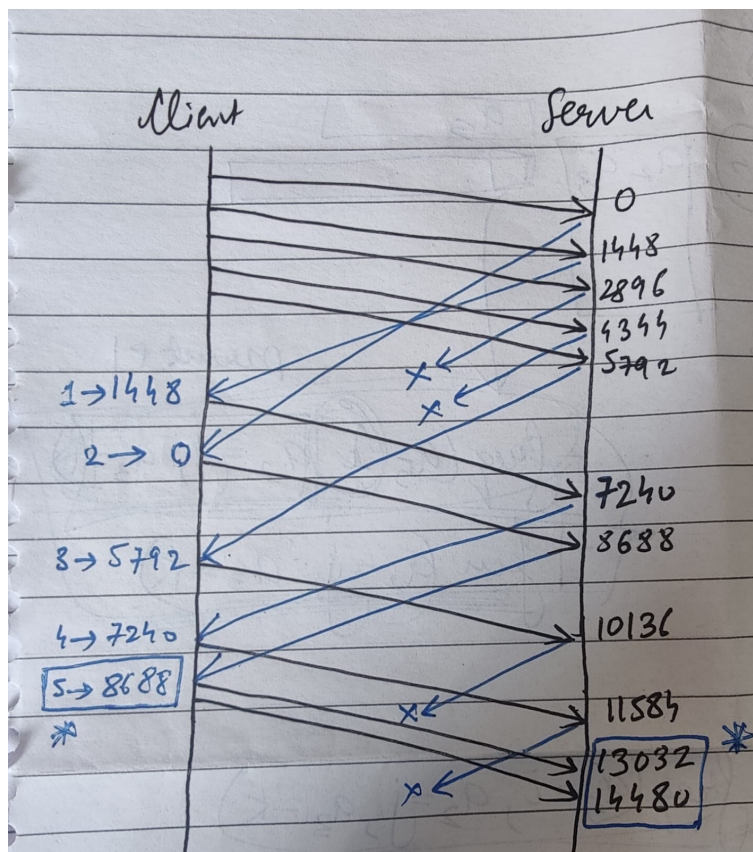 Client Server
0
1448
2896
4344
5792
1→1448
2→ 0
7240
8688
3→5792
10136
4→7240
5→8688
11584
*
13032 *
14480